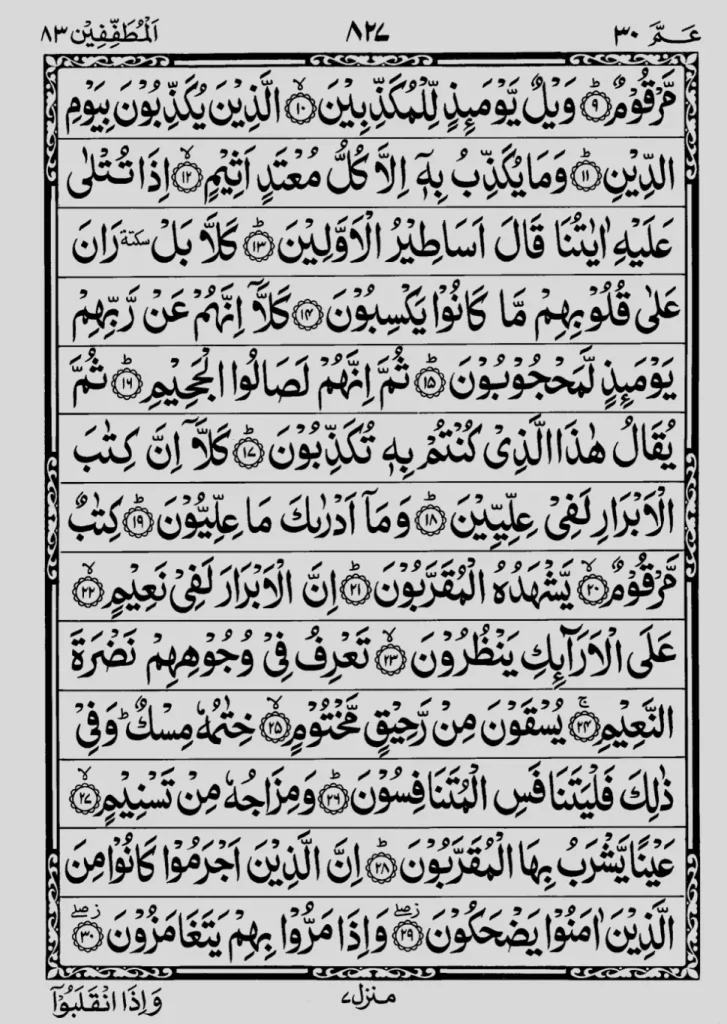 عَـمَّ ٣٠ ٨٢٧ اَلْمُطَفِّفِيْن ٨٣
مَّرْقُوْمٌ ؕ﴿۹﴾ وَيْلٌ يَّوْمَئِذٍ لِّلْمُكَذِّبِيْنَ ۙ﴿۱۰﴾ الَّذِيْنَ يُكَذِّبُوْنَ بِيَوْمِ
الدِّيْنِ ؕ﴿۱۱﴾ وَمَا يُكَذِّبُ بِهٖۤ اِلَّا كُلُّ مُعْتَدٍ اَثِيْمٍ ۙ﴿۱۲﴾ اِذَا تُتْلٰى
عَلَيْهِ اٰيٰتُنَا قَالَ اَسَاطِيْرُ الْاَوَّلِيْنَ ؕ﴿۱۳﴾ كَلَّا بَلْ سكتة رَانَ
عَلٰى قُلُوْبِهِمْ مَّا كَانُوْا يَكْسِبُوْنَ ﴿۱۴﴾ كَلَّاۤ اِنَّهُمْ عَنْ رَّبِّهِمْ
يَوْمَئِذٍ لَّمَحْجُوْبُوْنَ ؕ﴿۱۵﴾ ثُمَّ اِنَّهُمْ لَصَالُوا الْجَحِيْمِ ؕ﴿۱۶﴾ ثُمَّ
يُقَالُ هٰذَا الَّذِىْ كُنْتُمْ بِهٖ تُكَذِّبُوْنَ ؕ﴿۱۷﴾ كَلَّاۤ اِنَّ كِتٰبَ
الْاَبْرَارِ لَفِىْ عِلِّيِّيْنَ ؕ﴿۱۸﴾ وَمَاۤ اَدْرٰىكَ مَا عِلِّيُّوْنَ ؕ﴿۱۹﴾ كِتٰبٌ
مَّرْقُوْمٌ ۙ﴿۲۰﴾ يَّشْهَدُهُ الْمُقَرَّبُوْنَ ؕ﴿۲۱﴾ اِنَّ الْاَبْرَارَ لَفِىْ نَعِيْمٍ ۙ﴿۲۲﴾
عَلَى الْاَرَآئِكِ يَنْظُرُوْنَ ۙ﴿۲۳﴾ تَعْرِفُ فِىْ وُجُوْهِهِمْ نَضْرَةَ
النَّعِيْمِ ۚ﴿۲۴﴾ يُسْقَوْنَ مِنْ رَّحِيْقٍ مَّخْتُوْمٍ ۙ﴿۲۵﴾ خِتٰمُهٗ مِسْكٌ ؕ وَفِىْ
ذٰلِكَ فَلْيَتَنَافَسِ الْمُتَنَافِسُوْنَ ؕ﴿۲۶﴾ وَمِزَاجُهٗ مِنْ تَسْنِيْمٍ ۙ﴿۲۷﴾
عَيْنًا يَّشْرَبُ بِهَا الْمُقَرَّبُوْنَ ؕ﴿۲۸﴾ اِنَّ الَّذِيْنَ اَجْرَمُوْا كَانُوْا مِنَ
الَّذِيْنَ اٰمَنُوْا يَضْحَكُوْنَ ز صلے ﴿۲۹﴾ وَاِذَا مَرُّوْا بِهِمْ يَتَغَامَزُوْنَ ز صلے ﴿۳۰﴾
منزل٧ وَاِذَا انْقَلَبُوْۤا